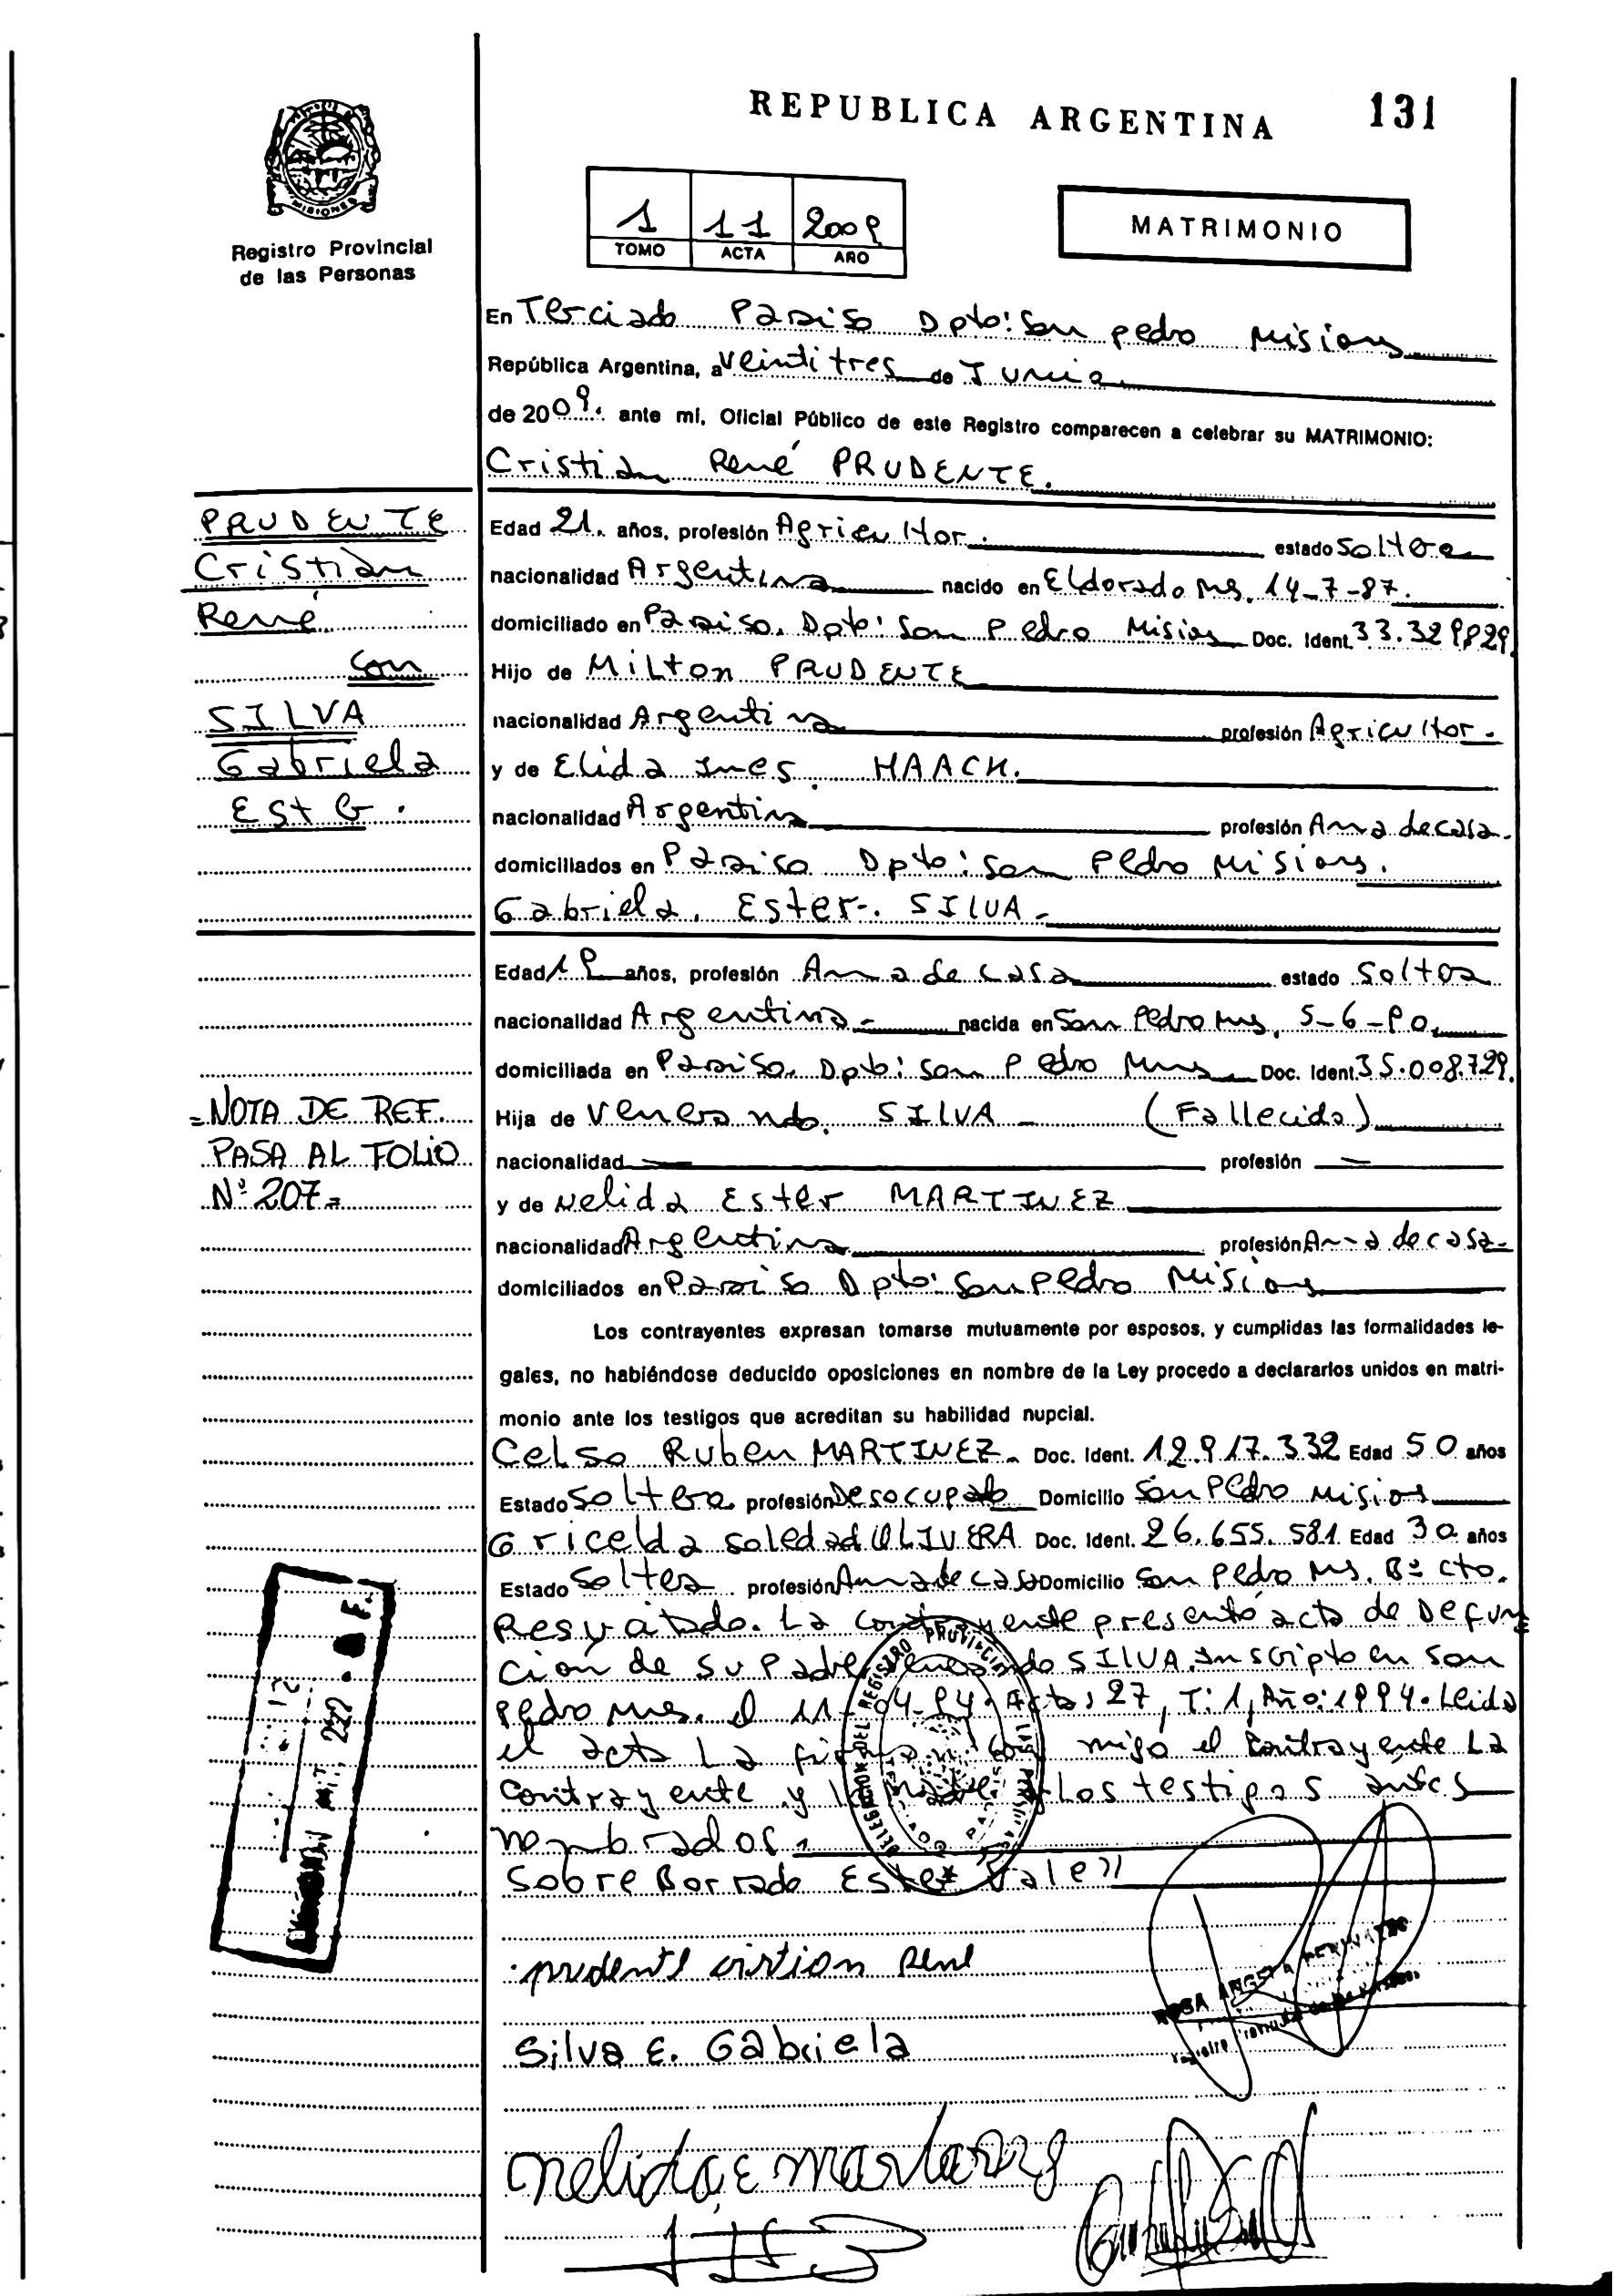 REPUBLICA ARGENTINA 131
MISIONES
Registro Provincial
de las Personas
1 11 2009
TOMO ACTA AÑO
MATRIMONIO
En Terciado Paraiso Dpto: San Pedro Misiones
República Argentina, a Veintitres de Junio
de 2009. ante mí, Oficial Público de este Registro comparecen a celebrar su MATRIMONIO:
Cristian René PRUDENTE.
PRUDENTE
Cristian
René
con
SILVA
Gabriela
Est G.
Edad 21. años, profesión Agricultor. estado Soltero
nacionalidad Argentina nacido en Eldorado Ms. 14-7-87.
domiciliado en Paraiso. Dpto: San Pedro Misiones Doc. Ident. 33.329829.
Hijo de Milton PRUDENTE
nacionalidad Argentina profesión Agricultor.
y de Elida Ines. HAACK.
nacionalidad Argentina profesión Ama de casa.
domiciliados en Paraiso Dpto: San Pedro Misiones.
Gabriela. Ester-. SILVA-
Edad 19 años, profesión Ama de casa estado Soltera
nacionalidad Argentina- nacida en San Pedro Ms. 5-6-90.
domiciliada en Paraiso. Dpto: San Pedro Mnes Doc. Ident. 35.008.729.
Hija de Venerando. SILVA - (Fallecido)
nacionalidad — profesión —
y de Nelida Ester MARTINEZ
nacionalidad Argentina profesión Ama de casa-
domiciliados en Paraiso Dpto: San Pedro Misiones
=NOTA DE REF.
PASA AL FOLIO
Nº 207=
Los contrayentes expresan tomarse mutuamente por esposos, y cumplidas las formalidades le-
gales, no habiéndose deducido oposiciones en nombre de la Ley procedo a declararlos unidos en matri-
monio ante los testigos que acreditan su habilidad nupcial.
Celso Ruben MARTINEZ- Doc. Ident. 12.917.332 Edad 50 años
Estado Soltero profesión Desocupado Domicilio San Pedro Misiones
Gricelda Soledad OLIVERA Doc. Ident. 26.655.581 Edad 30 años
Estado Soltera profesión Ama de casa Domicilio San Pedro Ms. Bº Cto.
Resguatado. La contrayente presentó acta de Defun
ción de su Padre Venerando SILVA. Inscripto en San
Pedro Mnes. el 11-04-94. Acta: 27, T: 1, Año: 1994. Leida
el acta La firman con migo el contrayente La
contrayente y la madre y Los testigos antes
nombrados.
Sobre Borrado Ester Vale"
DELEGACION DEL REGISTRO PROVINCIAL DE LAS PERSONAS
prudente cristian Rene
ROSA ANGELA
Registro Provincial de las Personas
Silva E. Gabriela
Nelida E martinez